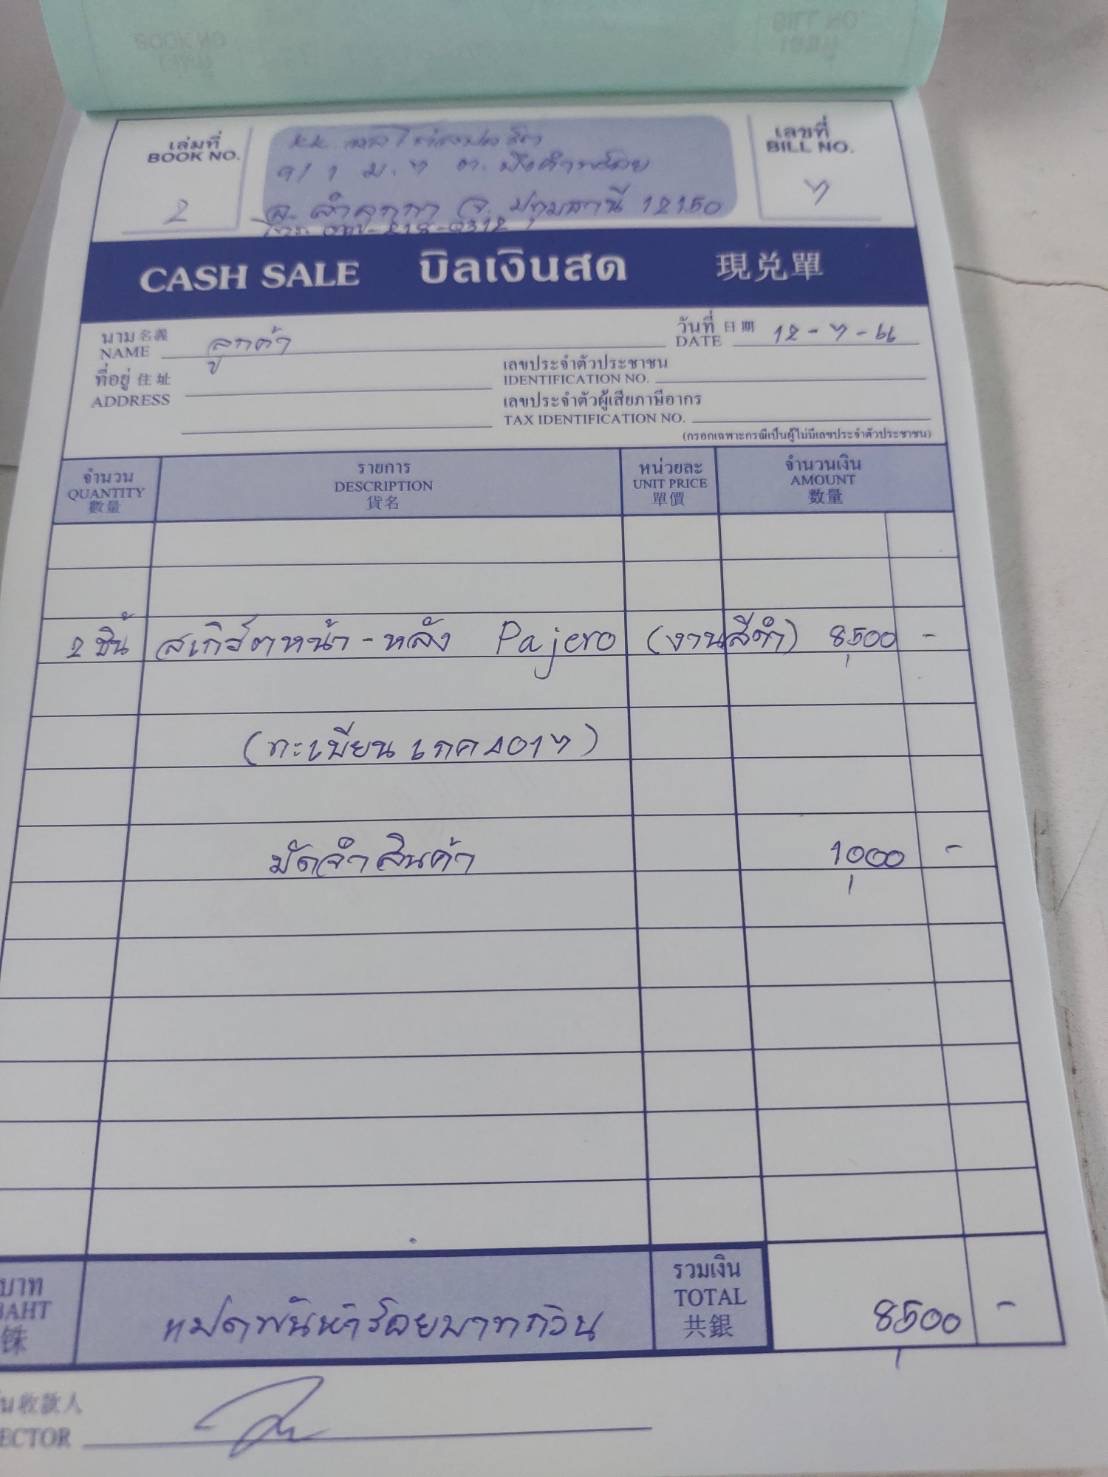 เล่มที่
BOOK NO.
2
kk
9/1 ม.7 ต. บึงคำพร้อย
อ. ลำลูกกา จ. ปทุมธานี 12150
เลขที่
BILL NO.
7
CASH SALE บิลเงินสด 現兑單
นาม 名義
NAME ลูกค้า
วันที่ 日期
DATE 12-7-66
ที่อยู่ 住址
ADDRESS
เลขประจำตัวประชาชน
IDENTIFICATION NO.
เลขประจำตัวผู้เสียภาษีอากร
TAX IDENTIFICATION NO.
(กรอกเฉพาะกรณีเป็นผู้ไม่มีเลขประจำตัวประชาชน)
จำนวน
QUANTITY
數量
รายการ
DESCRIPTION
貨名
หน่วยละ
UNIT PRICE
單價
จำนวนเงิน
AMOUNT
数量
2 ชิ้น สเกิร์ตหน้า - หลัง Pajero (งานสีดำ) 8,500 -
(ทะเบียน 4017)
มัดจำสินค้า 1,000 -
บาท
BAHT
銖
แปดพันห้าร้อยบาทถ้วน
รวมเงิน
TOTAL
共銀
8,500 -
收款人
ECTOR